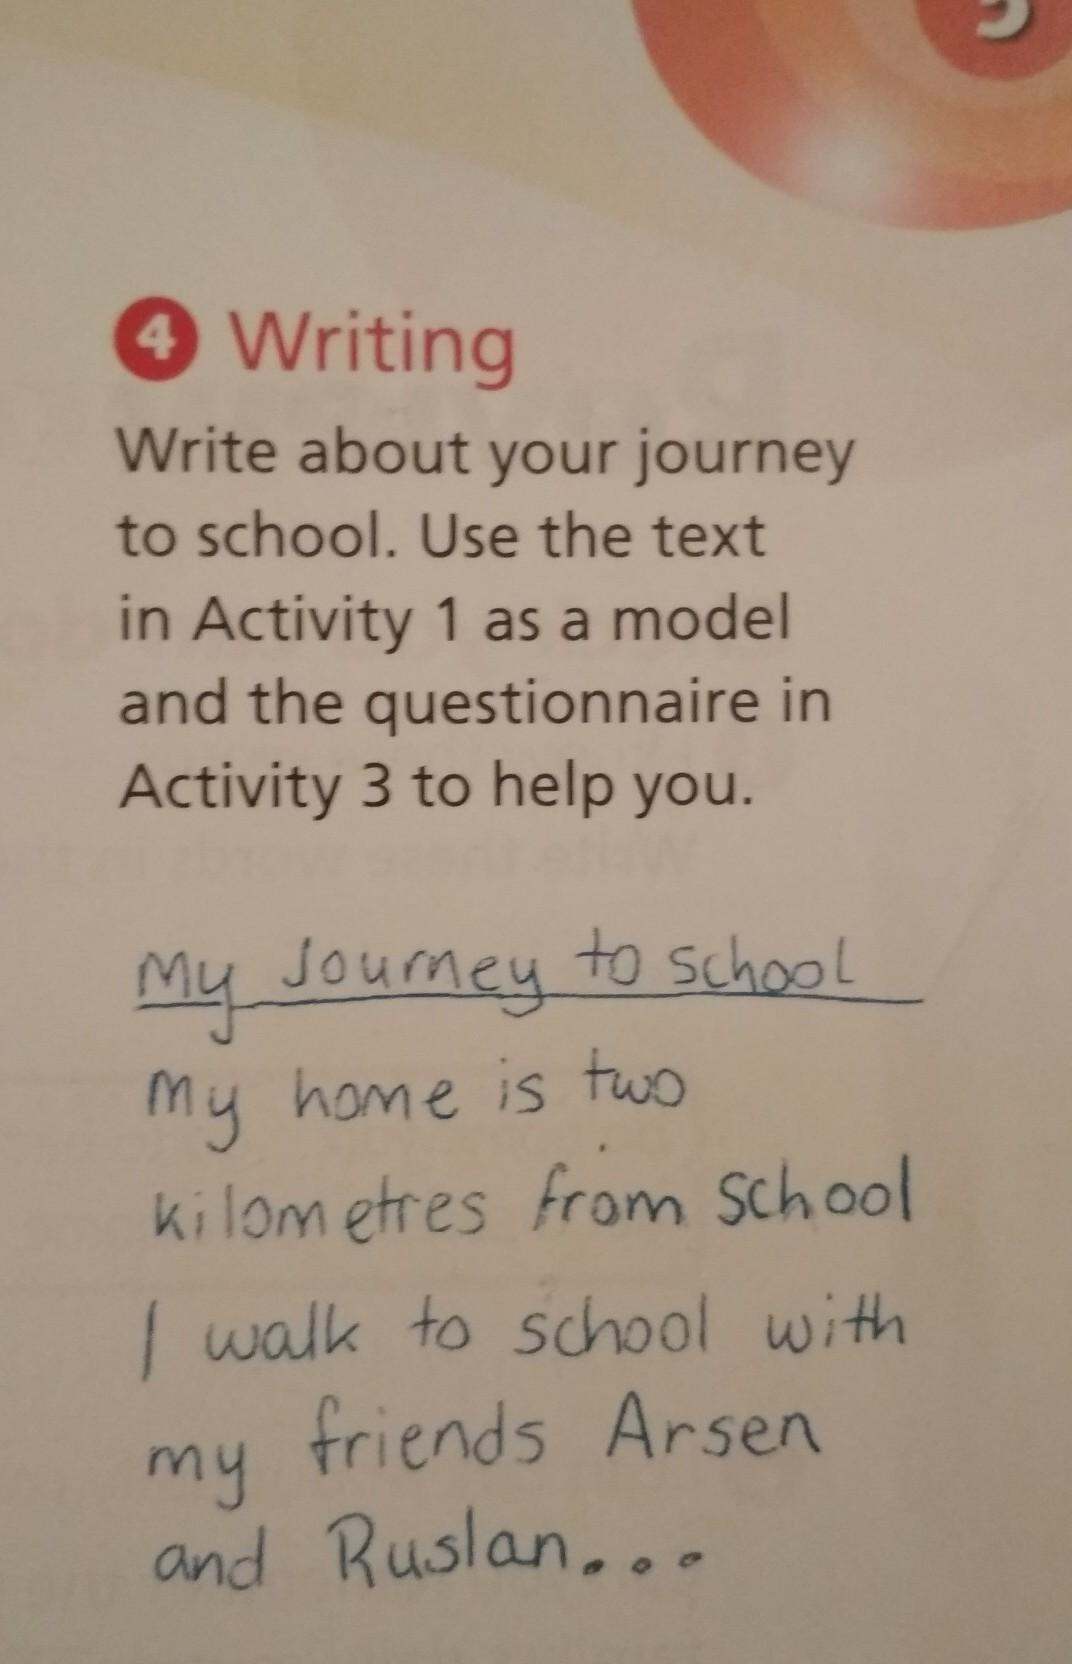 5
4 Writing
Write about your journey
to school. Use the text
in Activity 1 as a model
and the questionnaire in
Activity 3 to help you.
My Journey to school
My home is two
kilometres from school
I walk to school with
my friends Arsen
and Ruslan...